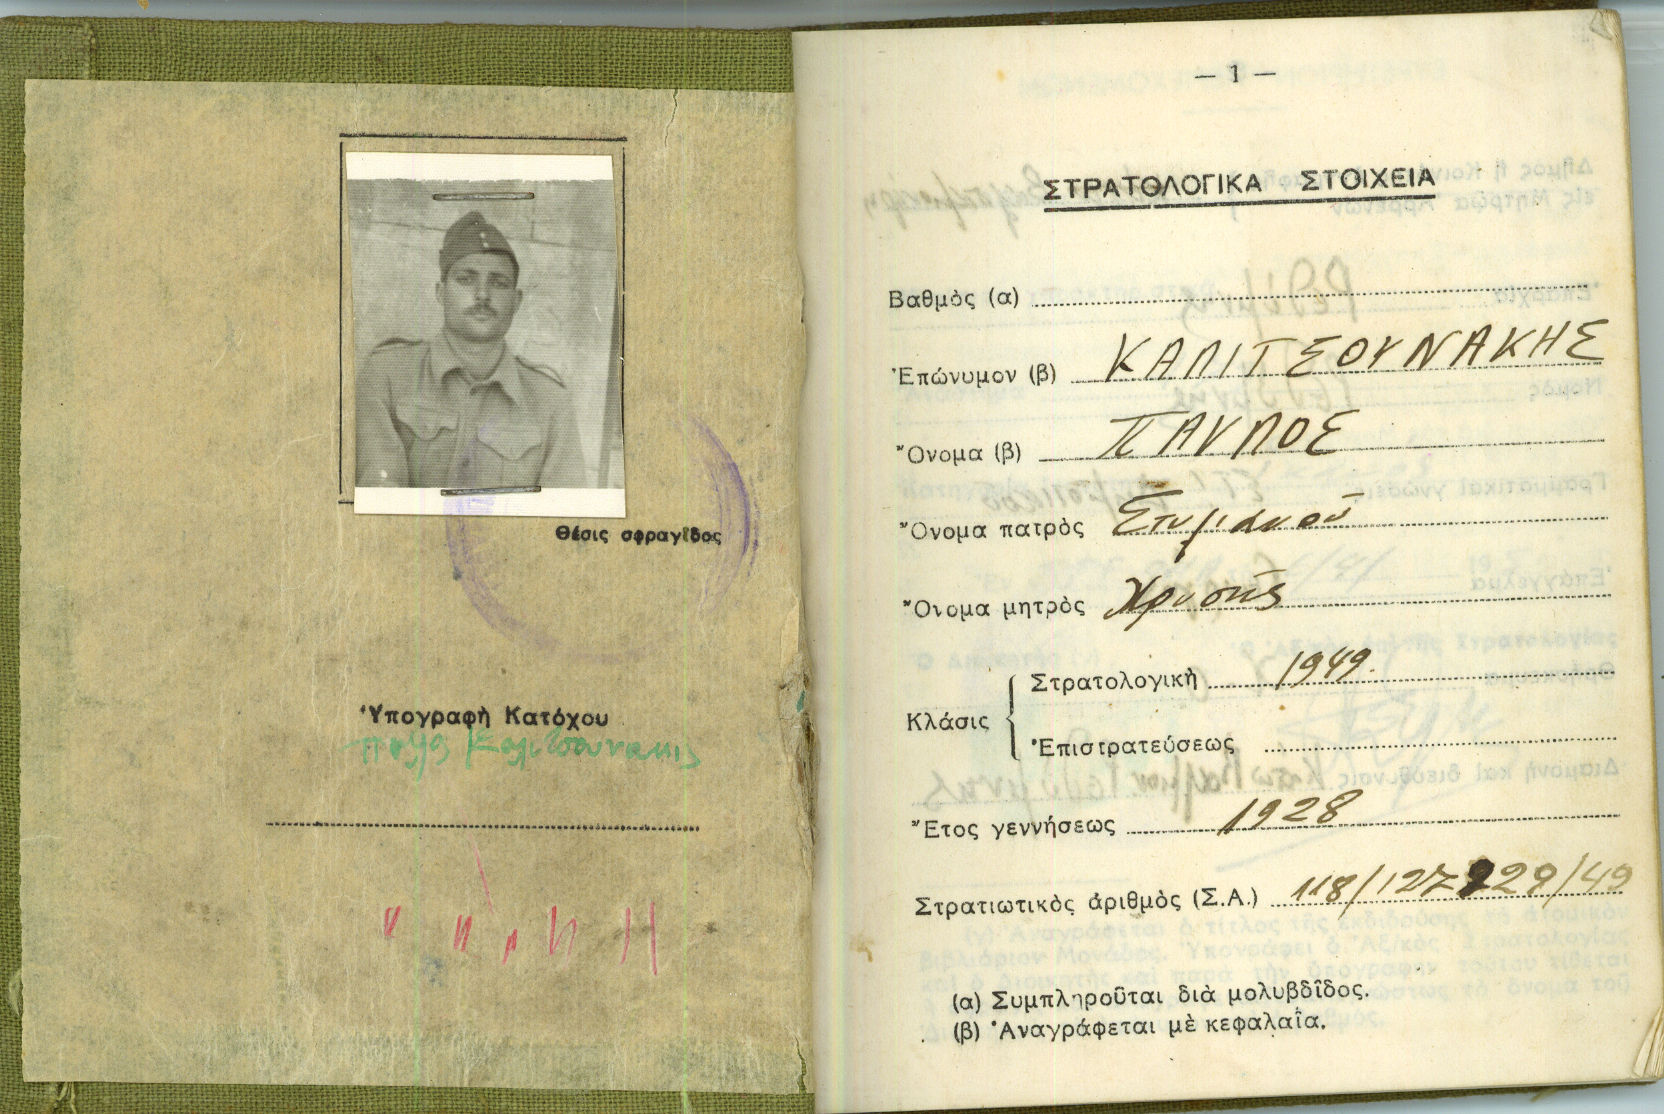 Θέσις σφραγῖδος
Ὑπογραφὴ Κατόχου
— 1 —
ΣΤΡΑΤΟΛΟΓΙΚΑ ΣΤΟΙΧΕΙΑ
Βαθμὸς (α)
Ἐπώνυμον (β) ΚΑΛΙΤΣΟΥΝΑΚΗΣ
Ὄνομα (β) ΠΑΥΛΟΣ
Ὄνομα πατρὸς Στυλιανοῦ
Ὄνομα μητρὸς Χρυσῆς
Κλάσις
Στρατολογικὴ 1949
Ἐπιστρατεύσεως
Ἔτος γεννήσεως 1928
Στρατιωτικὸς ἀριθμὸς (Σ.Α.)
(α) Συμπληροῦται διὰ μολυβδῖδος.
(β) Ἀναγράφεται μὲ κεφαλαῖα.